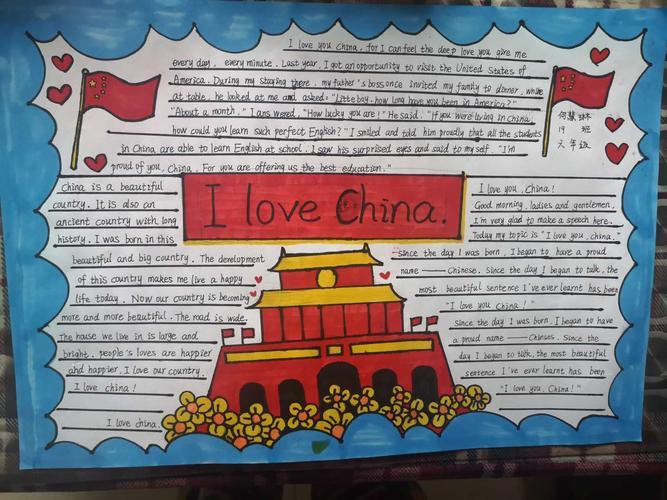 I love you China, for I can feel the deep love you give me
every day, every minute. Last year, I got an opportunity to visit the United States of
America. During my staying there, my father's boss once invited my family to dinner, while
at table, he looked at me and asked: "Little boy, how long have you been in America?"
"About a month." I answered. "How lucky you are!" He said. "If you were living in China,
how could you learn such perfect English?" I smiled and told him proudly that all the students
in China are able to learn English at school. I saw his surprised eyes and said to myself. "I'm
proud of you, China. For you are offering us the best education."
何慧琳
19班
六年级
I love China.
China is a beautiful
country. It is also an
ancient country with long
history. I was born in this
beautiful and big country. The development
of this country makes me live a happy
life today. Now our country is becoming
more and more beautiful. The road is wide.
The house we live in is large and
bright. people's loves are happier
and happier. I love our country.
I love china!
I love china.
I love you, China!
Good morning, ladies and gentlemen,
I'm very glad to make a speech here.
Today my topic is "I love you, china."
since the day I was born, I began to have a proud
name —— Chinese. Since the day I began to talk, the
most beautiful sentence I've ever learnt has been
"I love you China!"
Since the day I was born, I began to have
a proud name —— Chinses. Since the
day I began to talk, the most beautiful
sentence I've ever learnt has been
"I love you, China!"